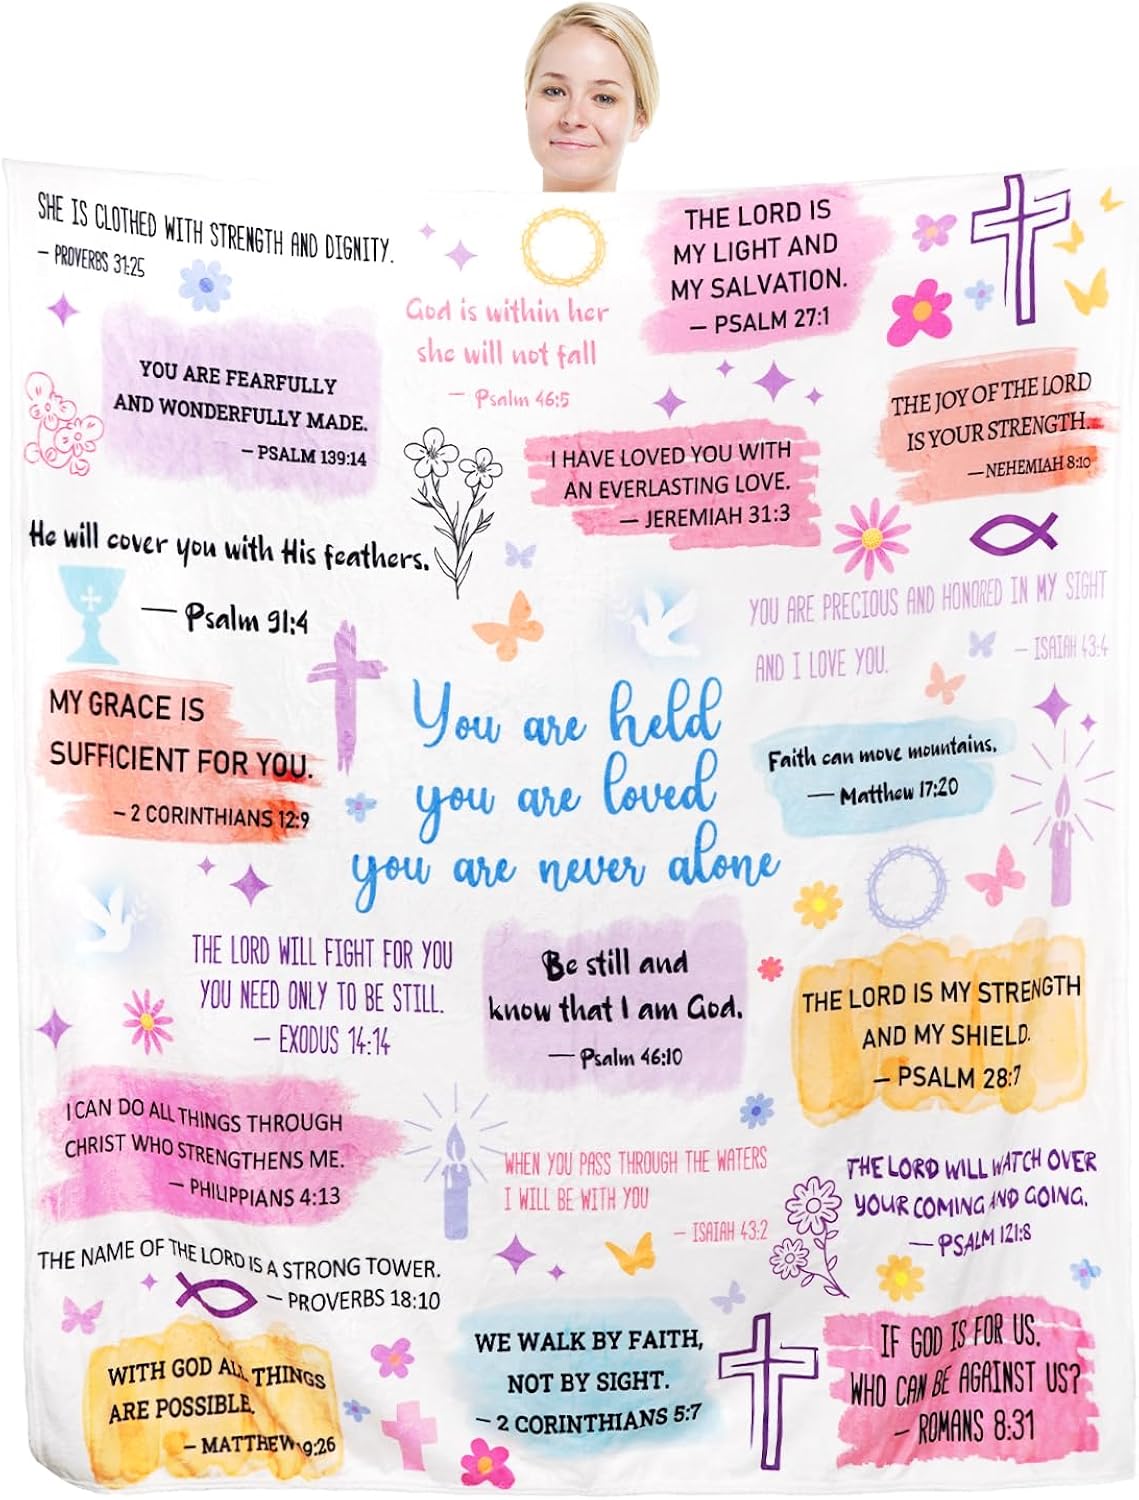 SHE IS CLOTHED WITH STRENGTH AND DIGNITY.
— PROVERBS 31:25
God is within her
she will not fall
— Psalm 46:5
THE LORD IS
MY LIGHT AND
MY SALVATION.
— PSALM 27:1
YOU ARE FEARFULLY
AND WONDERFULLY MADE.
— PSALM 139:14
I HAVE LOVED YOU WITH
AN EVERLASTING LOVE.
— JEREMIAH 31:3
THE JOY OF THE LORD
IS YOUR STRENGTH.
—NEHEMIAH 8:10
He will cover you with His feathers.
— Psalm 91:4
YOU ARE PRECIOUS AND HONORED IN MY SIGHT
AND I LOVE YOU.
— ISAIAH 43:4
MY GRACE IS
SUFFICIENT FOR YOU.
– 2 CORINTHIANS 12:9
You are held
you are loved
you are never alone
Faith can move mountains.
— Matthew 17:20
THE LORD WILL FIGHT FOR YOU
YOU NEED ONLY TO BE STILL.
— EXODUS 14:14
Be still and
know that I am God.
— Psalm 46:10
THE LORD IS MY STRENGTH
AND MY SHIELD.
— PSALM 28:7
I CAN DO ALL THINGS THROUGH
CHRIST WHO STRENGTHENS ME.
— PHILIPPIANS 4:13
WHEN YOU PASS THROUGH THE WATERS
I WILL BE WITH YOU
— ISAIAH 43:2
THE LORD WILL WATCH OVER
YOUR COMING AND GOING.
— PSALM 121:8
THE NAME OF THE LORD IS A STRONG TOWER.
— PROVERBS 18:10
WITH GOD ALL THINGS
ARE POSSIBLE.
— MATTHEW 19:26
WE WALK BY FAITH,
NOT BY SIGHT.
– 2 CORINTHIANS 5:7
IF GOD IS FOR US.
WHO CAN BE AGAINST US?
— ROMANS 8:31